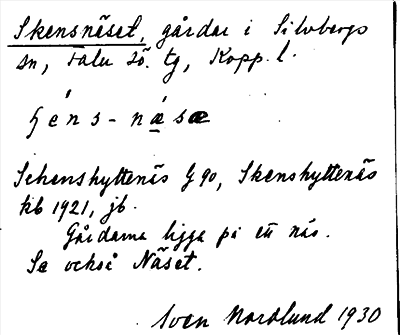 Skensnäset, gårdar i Silvbergs
sn, Falu sö. tg, Kopp. l.
héns-näsæ
Schenshyttenäs G 90, Skenshyttenäs
kb 1921, jb.
Gårdarna ligga på ett näs.
Se också Näset.
Sven Nordlund 1930